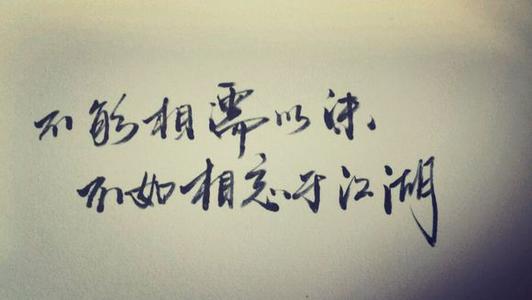 不能相需以沫、
不如相忘于江湖